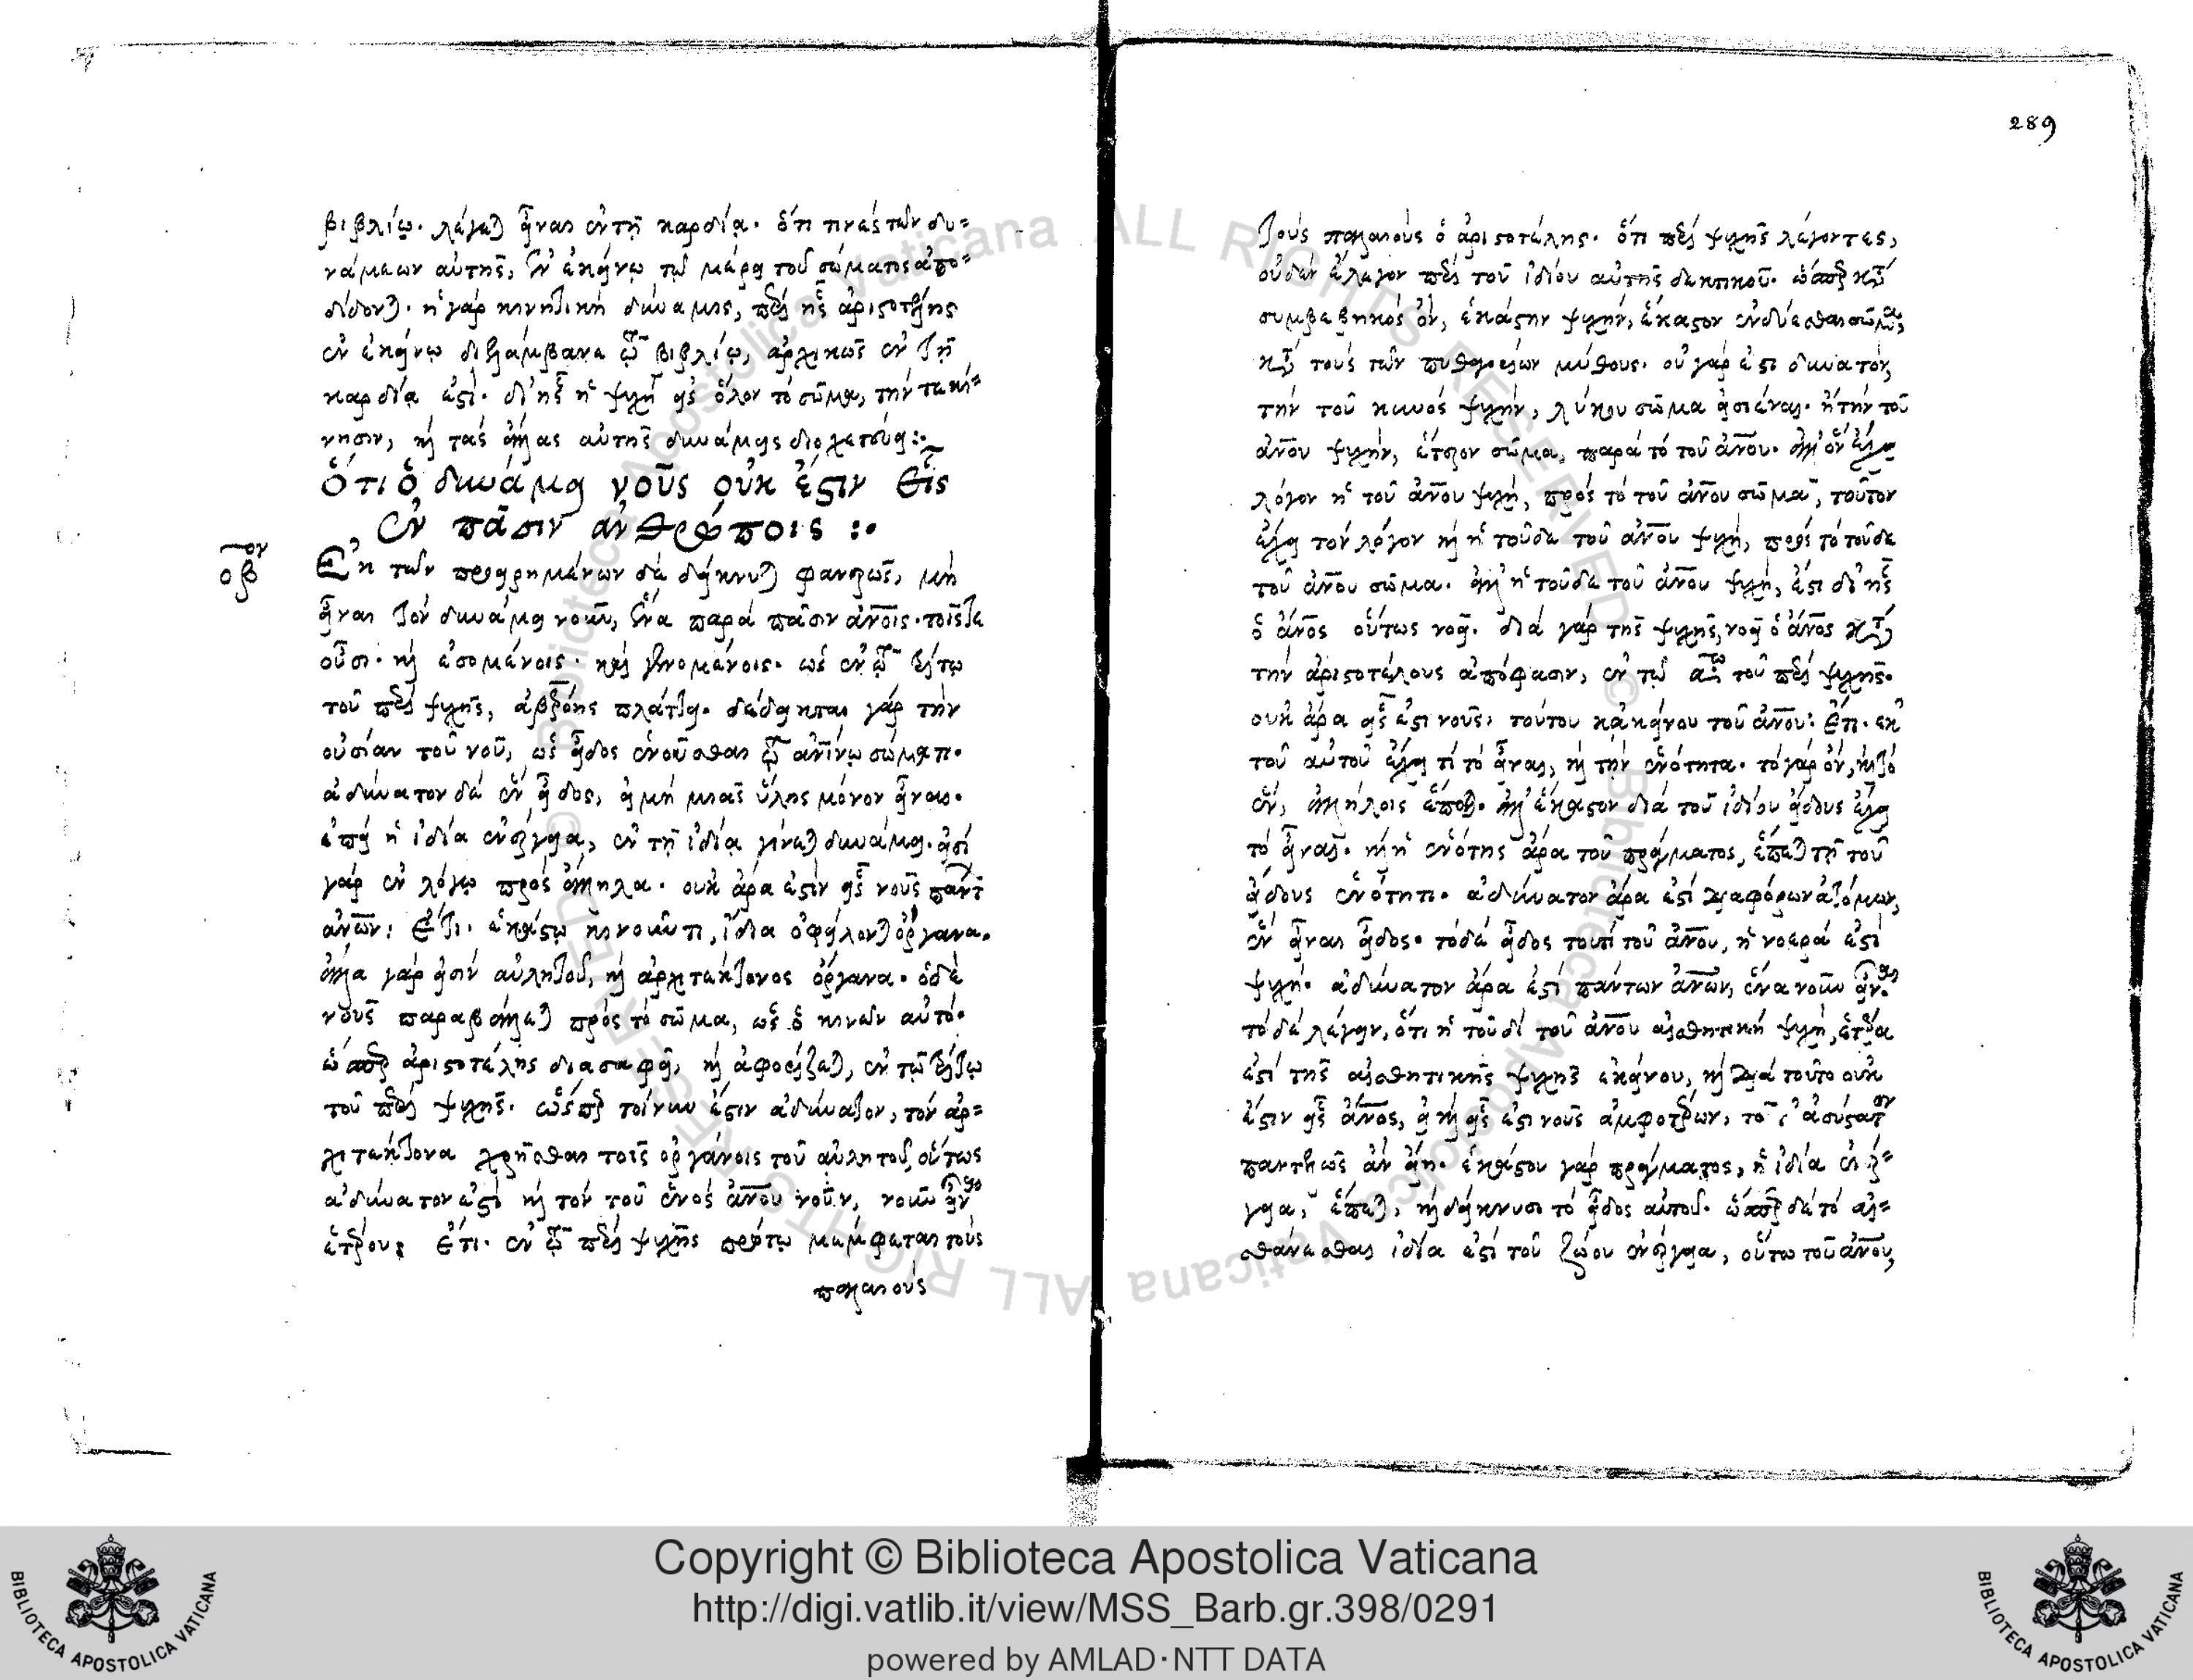 βιβλίῳ. λέγεται εἶναι ἐν τῇ καρδίᾳ. ὅτι τινὲς τῶν δυ=
νάμεων αὐτῆς, ἐν ἐκείνῳ τῷ μέρει τοῦ σώματος ἀπο=
δίδονται. ἡ γὰρ κινητικὴ δύναμις, περὶ ἧς ἀριστοτέλης
ἐν ἐκείνῳ διελάμβανε τῷ βιβλίῳ, ἀρχικῶς ἐν τῇ
καρδίᾳ ἐστί. δι' ἧς ἡ ψυχὴ εἰς ὅλον τὸ σῶμα, τήν τε κί=
νησιν, καὶ τὰς ἄλλας αὐτῆς δυνάμεις διοχετεύει:~
ὅτι ὁ δυνάμει νοῦς οὐκ ἔστιν εἷς
ἐν πᾶσιν ἀνθρώποις :·
οβον
Ἐκ τῶν προειρημένων δὲ δείκνυται φανερῶς, μὴ
εἶναι τὸν δυνάμει νοῦν, ἕνα παρὰ πᾶσιν ἀνοις. τοῖς τε
οὖσι. καὶ ἐσομένοις. καὶ γενομένοις. ὡς ἐν τῷ τρίτῳ
τοῦ περὶ ψυχῆς, ἀβερόης πλάττει. δέδεικται γὰρ τὴν
οὐσίαν τοῦ νοῦ, ὡς εἶδος ἑνοῦσθαι τῷ ἀνίνῳ σώματι.
ἀδύνατον δὲ ἓν εἶδος, εἰ μὴ μιᾶς ὕλης μόνον εἶναι.
ἐπεὶ ἡ ἰδία ἐνέργεια, ἐν τῇ ἰδίᾳ γίνεται δυνάμει. εἰσὶ
γὰρ ἐν λόγῳ πρὸς ἄλληλα. οὐκ ἄρα ἐστὶν εἷς νοῦς παντ
ἀνων: Ἔτι. ἑκάστῳ κινοῦντι, ἴδια ὀφείλονται ὄργανα.
ἄλλα γάρ εἰσιν αὐλητοῦ, καὶ ἀρχιτέκτονος ὄργανα. ὁ δὲ
νοῦς παραβάλλεται πρὸς τὸ σῶμα, ὡς ὁ κινῶν αὐτό.
ὥσπερ ἀριστοτέλης διασαφεῖ, καὶ ἀφορίζεται, ἐν τῷ τρίτῳ
τοῦ περὶ ψυχῆς. ὥσπερ τοίνυν ἐστὶν ἀδύνατον, τὸν ἀρ=
χιτέκτονα χρῆσθαι τοῖς ὀργάνοις τοῦ αὐλητοῦ, οὕτως
ἀδύνατον ἐστὶ καὶ τὸν τοῦ ἑνὸς ἀνου νοῦν, νοῦν εἶναι
ἑτέρου: Ἔτι. ἐν τῷ περὶ ψυχῆς πρώτῳ μέμφεται τοὺς
παλαιοὺς
289
τοὺς παλαιοὺς ὁ ἀριστοτέλης. ὅτι περὶ ψυχῆς λέγοντες,
οὐδὲν ἔλεγον περὶ τοῦ ἰδίου αὐτῆς δεκτικοῦ. ὥσπερ κατὰ
συμβεβηκὸς ὄν, ἑκάστην ψυχήν, ἕκαστον ἐνδύεσθαι σῶμα,
κατὰ τοὺς τῶν πυθαγορείων μύθους. οὐ γάρ ἐστι δυνατόν,
τὴν τοῦ κυνὸς ψυχήν, λύκου σῶμα εἰσιέναι. ἢ τὴν τοῦ
ἀνου ψυχήν, ἕτερον σῶμα, παρὰ τὸ τοῦ ἀνου. ἀλλ' ὃν ἔχει
λόγον ἡ τοῦ ἀνου ψυχή, πρὸς τὸ τοῦ ἀνου σῶμα, τοῦτον
ἔχει τὸν λόγον καὶ ἡ τοῦδε τοῦ ἀνου ψυχή, πρὸς τὸ τοῦδε
τοῦ ἀνου σῶμα. ἀλλ' ἡ τοῦδε τοῦ ἀνου ψυχή, ἐστὶ δι' ἧς
ὁ ἀνος οὕτως νοεῖ. διὰ γὰρ τῆς ψυχῆς, νοεῖ ὁ ἀνος κατὰ
τὴν ἀριστοτέλους ἀπόφασιν, ἐν τῷ αω τοῦ περὶ ψυχῆς.
οὐκ ἄρα εἷς ἐστι νοῦς, τούτου κἀκείνου τοῦ ἀνου: Ἔτι. ἐκ
τοῦ αὐτοῦ ἔχει τὶ τὸ εἶναι, καὶ τὴν ἑνότητα. τὸ γὰρ ὄν, καὶ τὸ
ἕν, ἀλλήλοις ἕπεται. ἀλλ' ἕκαστον διὰ τοῦ ἰδίου εἴδους ἔχει
τὸ εἶναι. καὶ ἡ ἑνότης ἄρα τοῦ πράγματος, ἕπεται τῇ τοῦ
εἴδους ἑνότητι. ἀδύνατον ἄρα ἐστὶ διαφόρων ἀτόμων,
ἓν εἶναι εἶδος. τὸ δὲ εἶδος τουτὶ τοῦ ἀνου, ἡ νοερά ἐστι
ψυχή. ἀδύνατον ἄρα ἐστὶ πάντων ἀνων, ἕνα νοῦν εἶναι.
τὸ δὲ λέγειν, ὅτι ἡ τουδὶ τοῦ ἀνου αἰσθητικὴ ψυχή, ἑτέρα
ἐστὶ τῆς αἰσθητικῆς ψυχῆς ἐκείνου, καὶ διὰ τοῦτο οὐκ
ἔστιν εἷς ἀνος, εἰ καὶ εἷς ἐστι νοῦς ἀμφοτέρων, ἀσύστατον
παντελῶς ἂν εἴη. ἑκάστου γὰρ πράγματος, ἡ ἰδία ἐνέρ=
γεια, ἕπεται, καὶ δείκνυσι τὸ εἶδος αὐτοῦ. ὥσπερ δὲ τὸ αἰ=
σθάνεσθαι ἰδία ἐστὶ τοῦ ζώου ἐνέργεια, οὕτω τοῦ ἀνου,
Copyright © Biblioteca Apostolica Vaticana
http://digi.vatlib.it/view/MSS_Barb.gr.398/0291
powered by AMLAD·NTT DATA
BIBLIOTECA APOSTOLICA VATICANA
BIBLIOTECA APOSTOLICA VATICANA